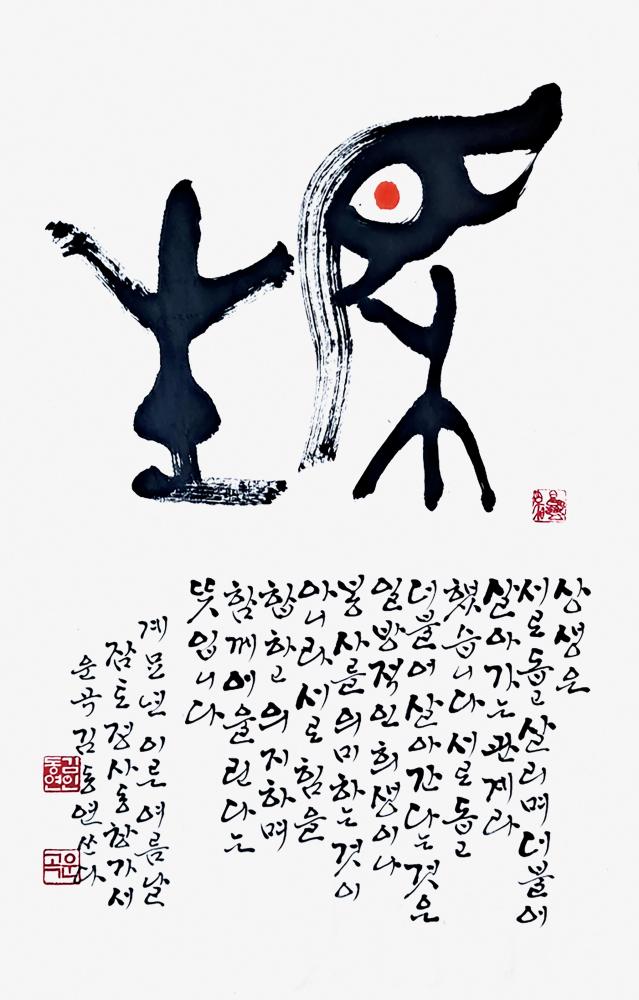 相生
상생은
서로돕고 살리며 더불어
살아가는 관계라
했습니다 서로 돕고
더불어 살아간다는 것은
일방적인 희생이나
봉사를 의미하는 것이
아니라 서로 힘을
합하고 의지하며
함께 어울린다는
뜻입니다
계묘년 이른 여름날
잠토경사 동창가서
운곡 김동연 쓰다
김인동연
운곡